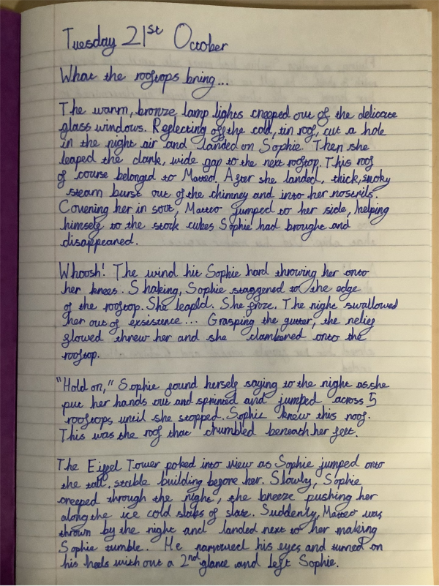 Tuesday 21st October
What the rooftops bring...
The warm, bronze lamp lights creeped out of the delicate
glass windows. Reflecting off the cold, tin roof, cut a hole
in the night air and landed on Sophie. Then she
leaped the dank, wide gap to the next rooftop. This roof
of course belonged to Matteo. After she landed, thick, smoky
steam burst out of the chimney and into her nostrils.
Covering her in soot, Matteo jumped to her side, helping
himself to the stock cubes Sophie had brought and
disappeared.
Whoosh! The wind hit Sophie hard throwing her onto
her knees. Shaking, Sophie staggered to the edge
of the rooftop. She leapld. She froze. The night swallowed
her out of exsistence... Grasping the gutter, the relief
glowed threw her and she clambered onto the
rooftop.
"Hold on," Sophie found herself saying to the night as she
put her hands out and sprinted and jumped across 5
rooftops until she stopped. Sophie knew this roof.
This was the roof that crumbled beneath her feet.
The Eiffel Tower poked into view as Sophie jumped onto
the tall, stable building before her. Slowly, Sophie
creeped through the night, the breeze pushing her
along the ice cold slabs of slate. Suddenly, Matteo was
thrown by the night and landed next to her making
Sophie tumble. He narrowed his eyes and turned on
his heels without a 2nd glance and left Sophie.